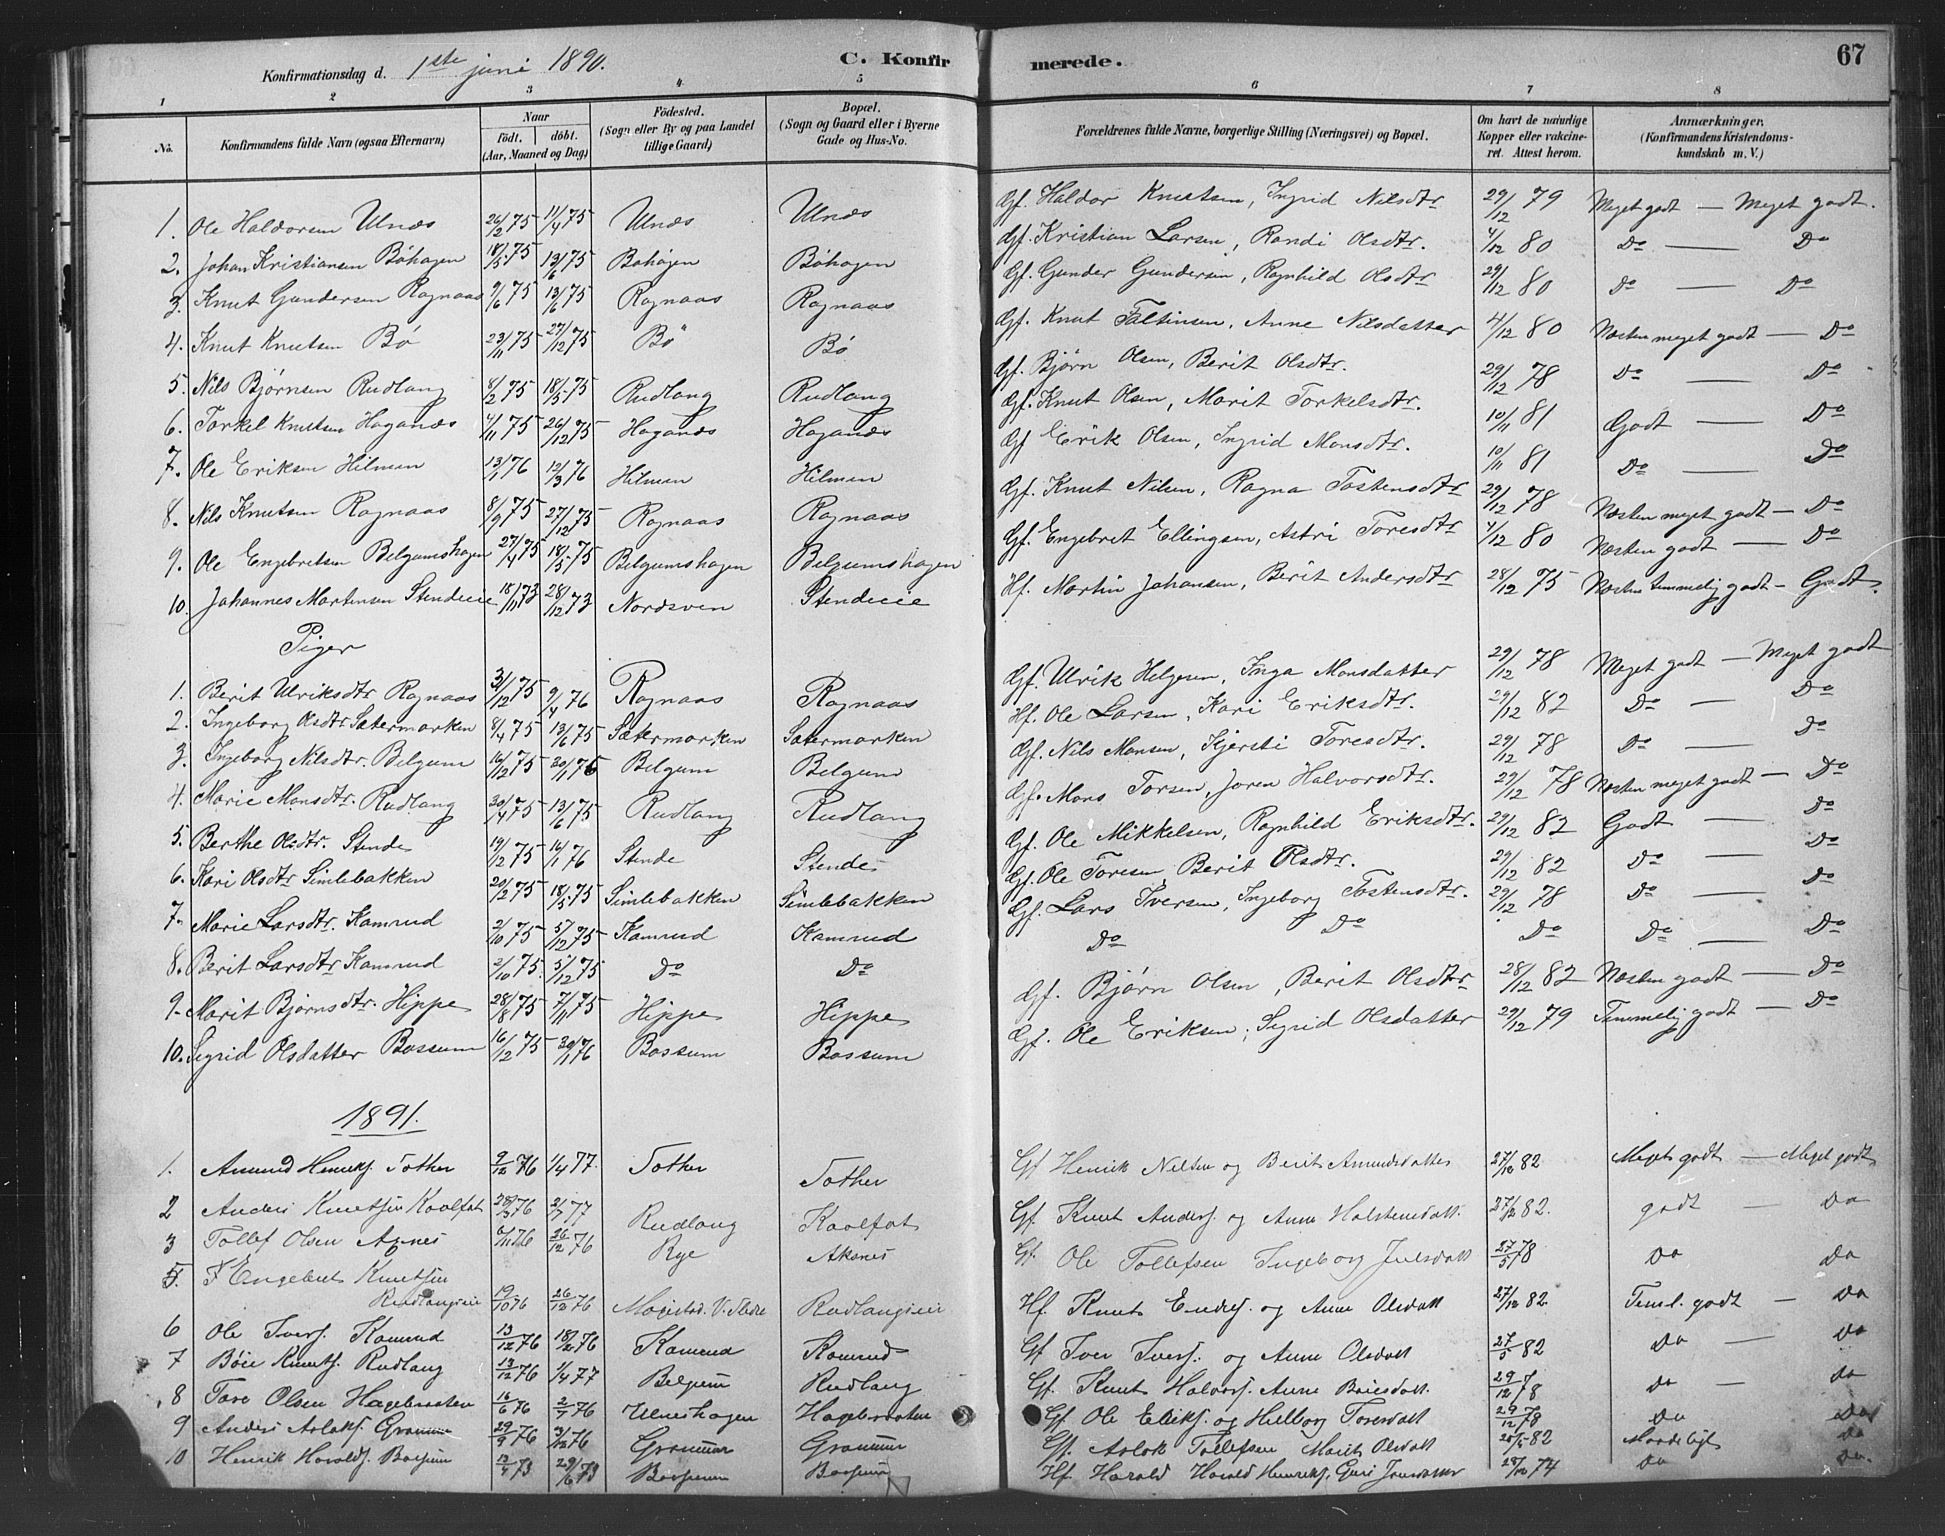 Konfirmationsdag d. 1ste juni 1890. C. Konfirmerede. 67
1 2 3 4 5 6 7 8
No. Konfirmandens fulde Navn (ogsaa Efternavn) Naar födt. döbt. (Aar, Maaned og Dag) Födested. (Sogn eller By og paa Landet tillige Gaard) Bopæl. (Sogn og Gaard eller i Byerne Gade og Hus-No. Forældrenes fulde Navne, borgerlige Stilling (Næringsvei) og Bopæl. Om havt de naturlige Kopper eller vakcineret. Attest herom. Anmærkninger. (Konfirmandens Kristendomskundskab m. V.)
1. Ole Haldorsen Ulnæs 26/2 75 11/4 75 Ulnæs Ulnæs Gf. Haldor Knutsen, Ingrid Nilsdtr 29/12 79 Meget godt — Meget godt.
2. Johan Kristiansen Böhagen 18/5 75 13/6 75 Bøhagen Böhagen Gf. Kristian Larsen, Randi Olsdtr. 4/12 80 Do — Do
3. Knut Gundersen Rognaas 9/6 75 13/6 75 Rognaas Rognaas Gf. Gunder Gundersen, Ragnhild Olsdtr 29/12 80 Do — Do
4. Knut Knutsen Bö 23/11 75 27/12 75 Bö Bö Gf. Knut Faltinsen, Anne Nilsdatter 4/12 80 Næsten meget godt — Do
5. Nils Bjørnsen Rudlang 8/2 75 18/5 75 Rudlang Rudlang Gf. Bjørn Olsen, Berit Olsdtr. 29/12 78 Do — Do
6. Torkel Knutsen Haganæs 4/11 75 26/12 75 Haganæs Haganæs Gf. Knut Olsen, Marit Torkelsdtr. 10/11 81 Godt — Do
7. Ole Eriksen Hilmen 13/1 76 12/3 76 Hilmen Hilmen Gf Erik Olsen, Ingrid Monsdtr. 10/11 81 Do — Do
8. Nils Knutsen Rognaas 8/9 75 27/12 75 Rognaas Rognaas Gf. Knut Nilsen, Ragna Tostensdtr 29/12 78 Næsten meget godt — Do
9. Ole Engebretsen Belgumshagen 27/4 75 18/5 75 Belgumshagen Belgumshagen Gf. Engebret Ellingsen, Astri Toresdtr 4/12 80 Næsten godt — Do
10. Johannes Martinsen Stendeeie 18/11 73 28/12 73 Nordsven Stendeeie Hf. Martin Johansen, Berit Andersdtr 28/12 75 Næsten temmelig godt — Godt.
Piger
1. Berit Ulriksdtr Rognaas 31/12 75 9/4 76 Rognaas Rognaas Gf. Ulrik Helgesen, Inga Monsdatter 29/12 78 Meget godt — Meget godt
2. Ingeborg Olsdtr Sætermarken 8/4 75 13/6 75 Sætermarken Sætermarken Hf. Ole Larsen, Kari Eriksdtr. 29/12 82 Do — Do
3. Ingeborg Nilsdtr. Belgum 16/12 75 30/1 76 Belgum Belgum Gf. Nils Monsen, Kjersti Toresdtr. 29/12 78 Do — Do
4. Marie Monsdtr. Rudlang 20/4 75 13/6 75 Rudlang Rudlang Gf. Mons Torsen, Joren Halvorsdtr. 29/12 78 Næsten meget godt — Do
5. Berthe Olsdtr. Stende 19/12 75 16/1 76 Stende Stende Gf. Ole Mikkelsen, Ragnhild Eriksdtr. 29/12 82 Godt — Do
6. Kari Olsdtr Simlebakken 20/2 75 18/5 75 Simlebakken Simlebakken Gf. Ole Toresen, Berit Olsdtr. 29/12 82 Do — Do
7. Marie Larsdtr. Kamrud 2/10 75 5/12 75 Kamrud Kamrud Gf. Lars Iversen, Ingeborg Tostensdtr. 29/12 78 Do — Do
8. Berit Larsdtr Kamrud 2/10 75. 5/12 75 Do Do Do Do Do Do — Do
9. Marit Bjørnsdtr. Hippe 28/8 75 7/11 75 Hippe Hippe Gf. Bjørn Olsen, Berit Olsdtr 28/12 82 Næsten godt — Do
10. Sigrid Olsdatter Bossum 16/12 75 30/1 76 Bossum Bossum Gf. Ole Eriksen, Sigrid Olsdatter 29/12 79 Temmelig godt — Do
1891.
1. Amund Henriks. Tother 9/12 76 1/4 77. Tother Tother Gf Henrik Nilsen og Berit Amundsdatter 27/12 82 Meget godt — Meget godt
2 Anders Knutsen Kaalfat 2/7 77 Rudlang Kaalfat Gf Knut Anders. og Anne Halstensdatt. 27/12 82. godt — Do
3 Tollef Olsen Agnes 6/11 76 26/12 76 Rye Aksnes Gf. Ole Tollefsen Ingeborg Julsdatt 27/5 78 Do Do
5. Engebret Knutsen Rudlangseie 19/10 76 26/12 76 Magistad V. Slidre Rudlangseie Hf. Knut Endres. og Anne Olsdatt 27/12 82. Teml. godt — Do
6 Ole Ivers. Kamrud 13/12 76 18/2 76 Kamrud Kamrud Gf Iver Ivers. og Anne Olsdatt 27/5 82 Do — Do
7 Böie Knuts. Rudlang 13/12 76 1/4 77 Belgum Rudlang Gf. Knut Halvors. Anne Boiesdatt. 29/12 78 Do — Do
8 Tore Olsen Hagebraaten 16/6 76 2/7 76 Ulneshagen Hagebraaten Gf Ole Eriks. og Hilborg Toresdatt 29/12 78 Do Do
9 Anders Aslaks. Granum 29/9 76 3/12 76 Granum Granum Gf. Aslak Tollefsen Marit Olsdatt 82 Maadeligt Do
10 Henrik Haralds. Bossum 13/4 73 29/6 73 Bossum Bossum Hf. Harald Harald Henriks. Guri 28/12 74 Do Do.